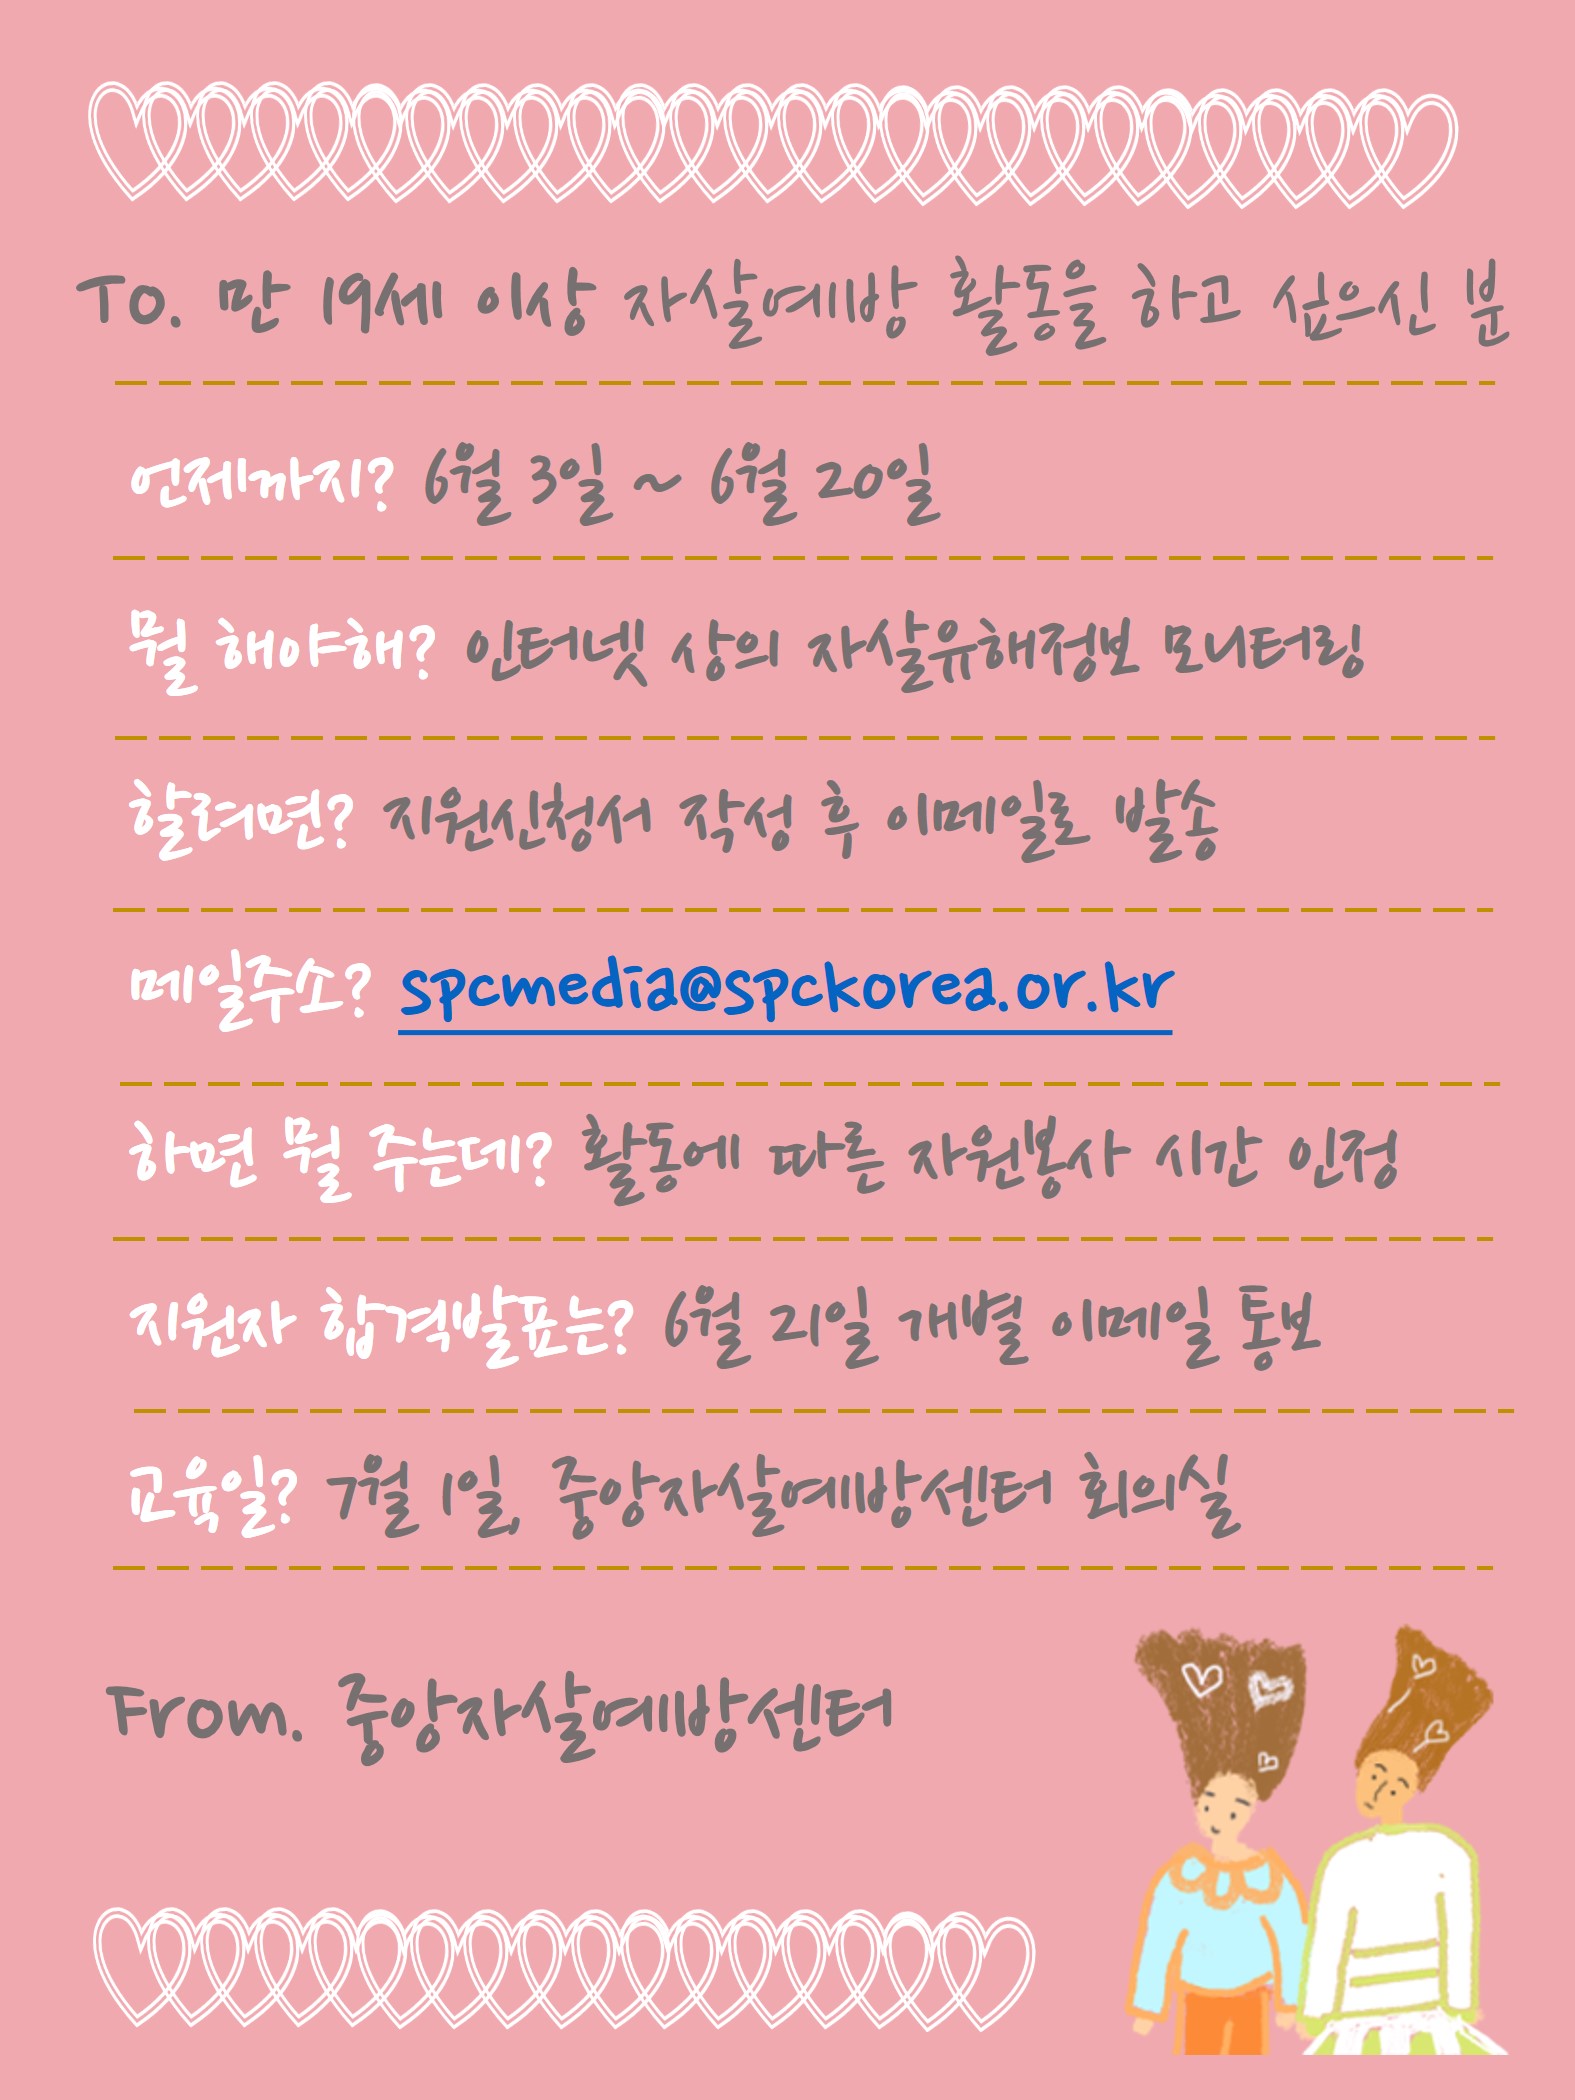 To. 만 19세 이상 자살예방 활동을 하고 싶으신 분
언제까지? 6월 3일 ~ 6월 20일
뭘 해야해? 인터넷 상의 자살유해정보 모니터링
할려면? 지원신청서 작성 후 이메일로 발송
메일주소? spcmedia@spckorea.or.kr
하면 뭘 주는데? 활동에 따른 자원봉사 시간 인정
지원자 합격발표는? 6월 21일 개별 이메일 통보
교육일? 7월 1일, 중앙자살예방센터 회의실
From. 중앙자살예방센터